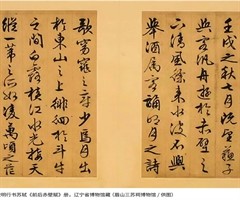 壬戌之秋七月既望蘇子
與客汎舟遊於赤壁之
下清風徐來水波不興
舉酒屬客誦明月之詩
歌窈窕之章少焉月出
於東山之上徘徊於斗牛
之間白露橫江水光接天
縱一葦之所如凌萬頃之
明行书苏轼《前后赤壁赋》册，辽宁省博物馆藏（眉山三苏祠博物馆 / 供图）